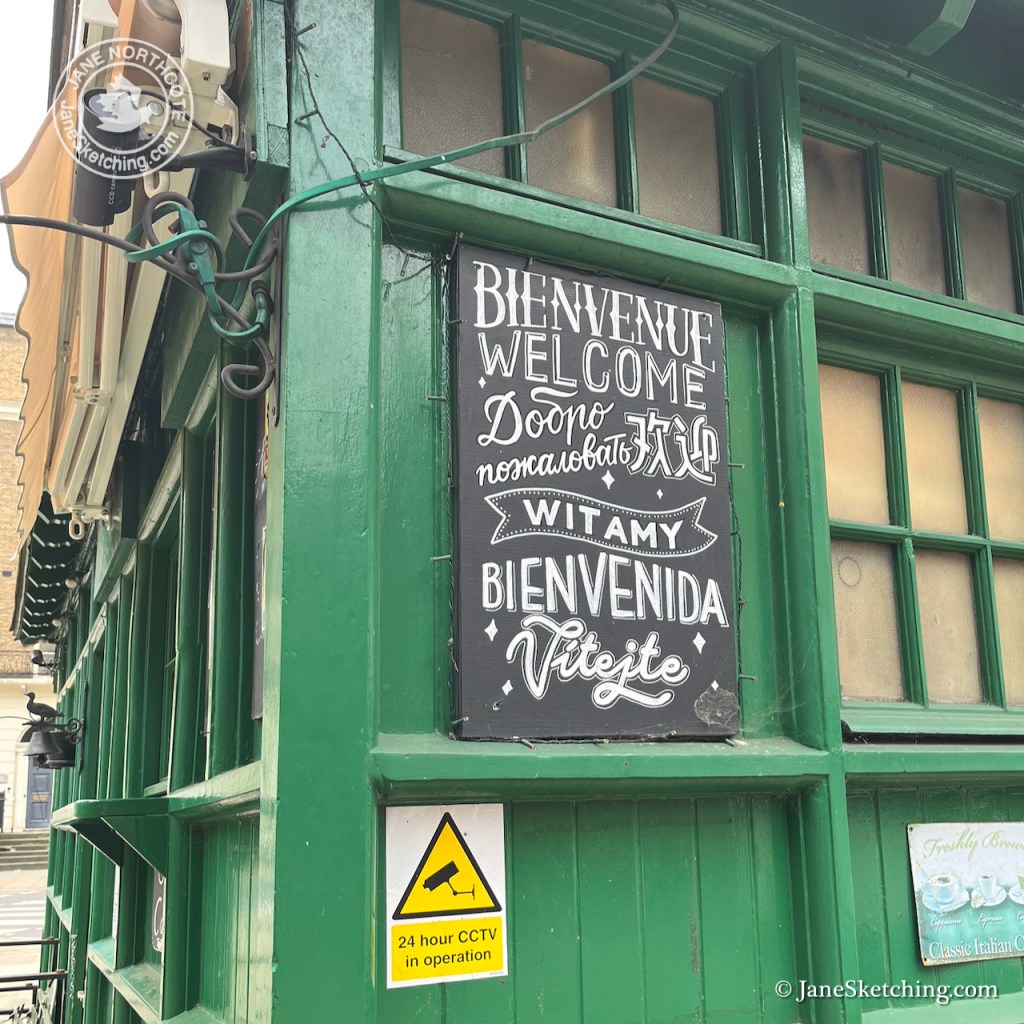 JANE NORTHCOTE
JaneSketching.com
BIENVENUE
WELCOME
Добро
пожаловать
欢迎
WITAMY
BIENVENIDA
Vítejte
24 hour CCTV
in operation
Freshly
Cappuccino
Espresso
Classic Italian
© JaneSketching.com